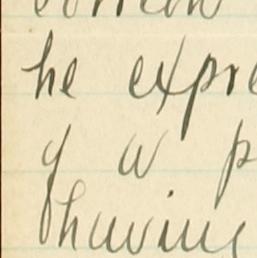 he expre
of a p
having